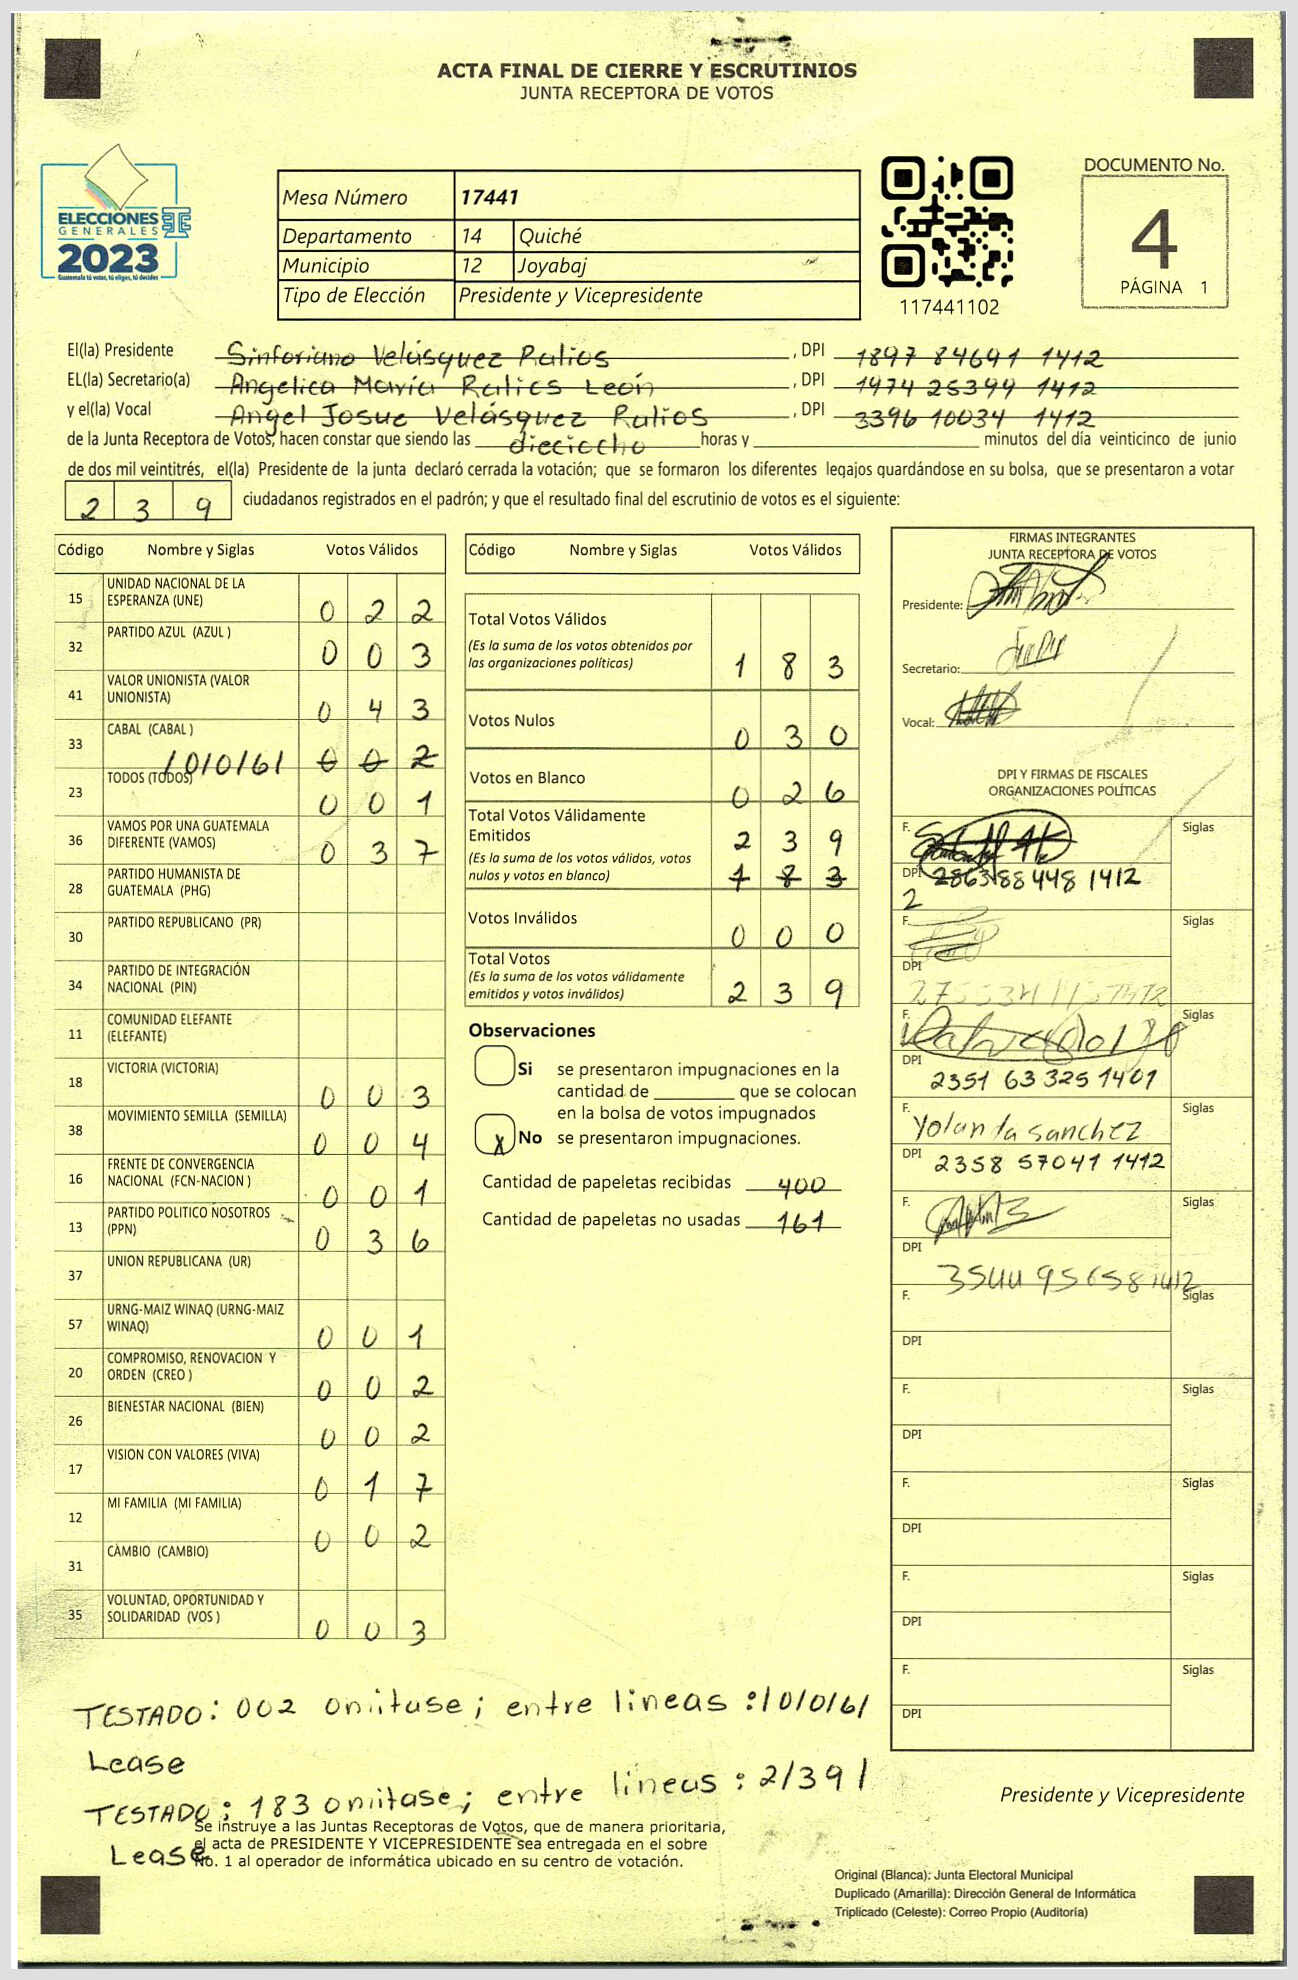 ACTA FINAL DE CIERRE Y ESCRUTINIOS
JUNTA RECEPTORA DE VOTOS
ELECCIONES
GENERALES
2023
Guatemala tú votas, tú eliges, tú decides
Mesa Número 17441
Departamento 14 Quiché
Municipio 12 Joyabaj
Tipo de Elección Presidente y Vicepresidente
117441102
DOCUMENTO No.
4
PÁGINA 1
El(la) Presidente Sinforiano Velásquez Ralios, DPI 1897 84691 1412
EL(la) Secretario(a) Angelica María Ralios León, DPI 1974 25399 1412
y el(la) Vocal Angel Josue Velásquez Ralios, DPI 3396 10034 1412
de la Junta Receptora de Votos, hacen constar que siendo las dieciocho horas y minutos del día veinticinco de junio
de dos mil veintitrés, el(la) Presidente de la junta declaró cerrada la votación; que se formaron los diferentes legajos quardándose en su bolsa, que se presentaron a votar
2 3 9 ciudadanos registrados en el padrón; y que el resultado final del escrutinio de votos es el siguiente:
Código Nombre y Siglas Votos Válidos
15 UNIDAD NACIONAL DE LA ESPERANZA (UNE) 0 2 2
32 PARTIDO AZUL (AZUL ) 0 0 3
41 VALOR UNIONISTA (VALOR UNIONISTA) 0 4 3
33 CABAL (CABAL ) /0/0/6/ 0 0 2
23 TODOS (TODOS) 0 0 1
36 VAMOS POR UNA GUATEMALA DIFERENTE (VAMOS) 0 3 7
28 PARTIDO HUMANISTA DE GUATEMALA (PHG)
30 PARTIDO REPUBLICANO (PR)
34 PARTIDO DE INTEGRACIÓN NACIONAL (PIN)
11 COMUNIDAD ELEFANTE (ELEFANTE)
18 VICTORIA (VICTORIA) 0 0 3
38 MOVIMIENTO SEMILLA (SEMILLA) 0 0 4
16 FRENTE DE CONVERGENCIA NACIONAL (FCN-NACION ) 0 0 1
13 PARTIDO POLITICO NOSOTROS (PPN) 0 3 6
37 UNION REPUBLICANA (UR)
57 URNG-MAIZ WINAQ (URNG-MAIZ WINAQ) 0 0 1
20 COMPROMISO, RENOVACION Y ORDEN (CREO ) 0 0 2
26 BIENESTAR NACIONAL (BIEN) 0 0 2
17 VISION CON VALORES (VIVA) 0 1 7
12 MI FAMILIA (MI FAMILIA) 0 0 2
31 CAMBIO (CAMBIO)
35 VOLUNTAD, OPORTUNIDAD Y SOLIDARIDAD (VOS ) 0 0 3
Código Nombre y Siglas Votos Válidos
Total Votos Válidos
(Es la suma de los votos obtenidos por
las organizaciones políticas) 1 8 3
Votos Nulos 0 3 0
Votos en Blanco 0 2 6
Total Votos Válidamente
Emitidos 2 3 9
(Es la suma de los votos válidos, votos
nulos y votos en blanco) 1 8 3
Votos Inválidos 0 0 0
Total Votos
(Es la suma de los votos válidamente
emitidos y votos inválidos) 2 3 9
Observaciones
Si se presentaron impugnaciones en la
cantidad de ________ que se colocan
en la bolsa de votos impugnados
X No se presentaron impugnaciones.
Cantidad de papeletas recibidas 400
Cantidad de papeletas no usadas 161
FIRMAS INTEGRANTES
JUNTA RECEPTORA DE VOTOS
Presidente:
Secretario:
Vocal:
DPI Y FIRMAS DE FISCALES
ORGANIZACIONES POLÍTICAS
F. Siglas
DPI 2863188448 1412
2
F. Siglas
DPI
F. Siglas
DPI 2351 63 325 1401
F. Yolanda Sanchez Siglas
DPI 2358 57041 1412
F. Siglas
DPI 3544 95658 1412
F. Siglas
DPI
F. Siglas
DPI
F. Siglas
DPI
F. Siglas
DPI
F. Siglas
DPI
TESTADO: 002 omitase; entre lineas :/0/0/6/
Lease
TESTADO: 183 omitase; entre lineas : 2/39/
Lease
Se instruye a las Juntas Receptoras de Votos, que de manera prioritaria,
el acta de PRESIDENTE Y VICEPRESIDENTE sea entregada en el sobre
No. 1 al operador de informática ubicado en su centro de votación.
Presidente y Vicepresidente
Original (Blanca): Junta Electoral Municipal
Duplicado (Amarilla): Dirección General de Informática
Triplicado (Celeste): Correo Propio (Auditoría)